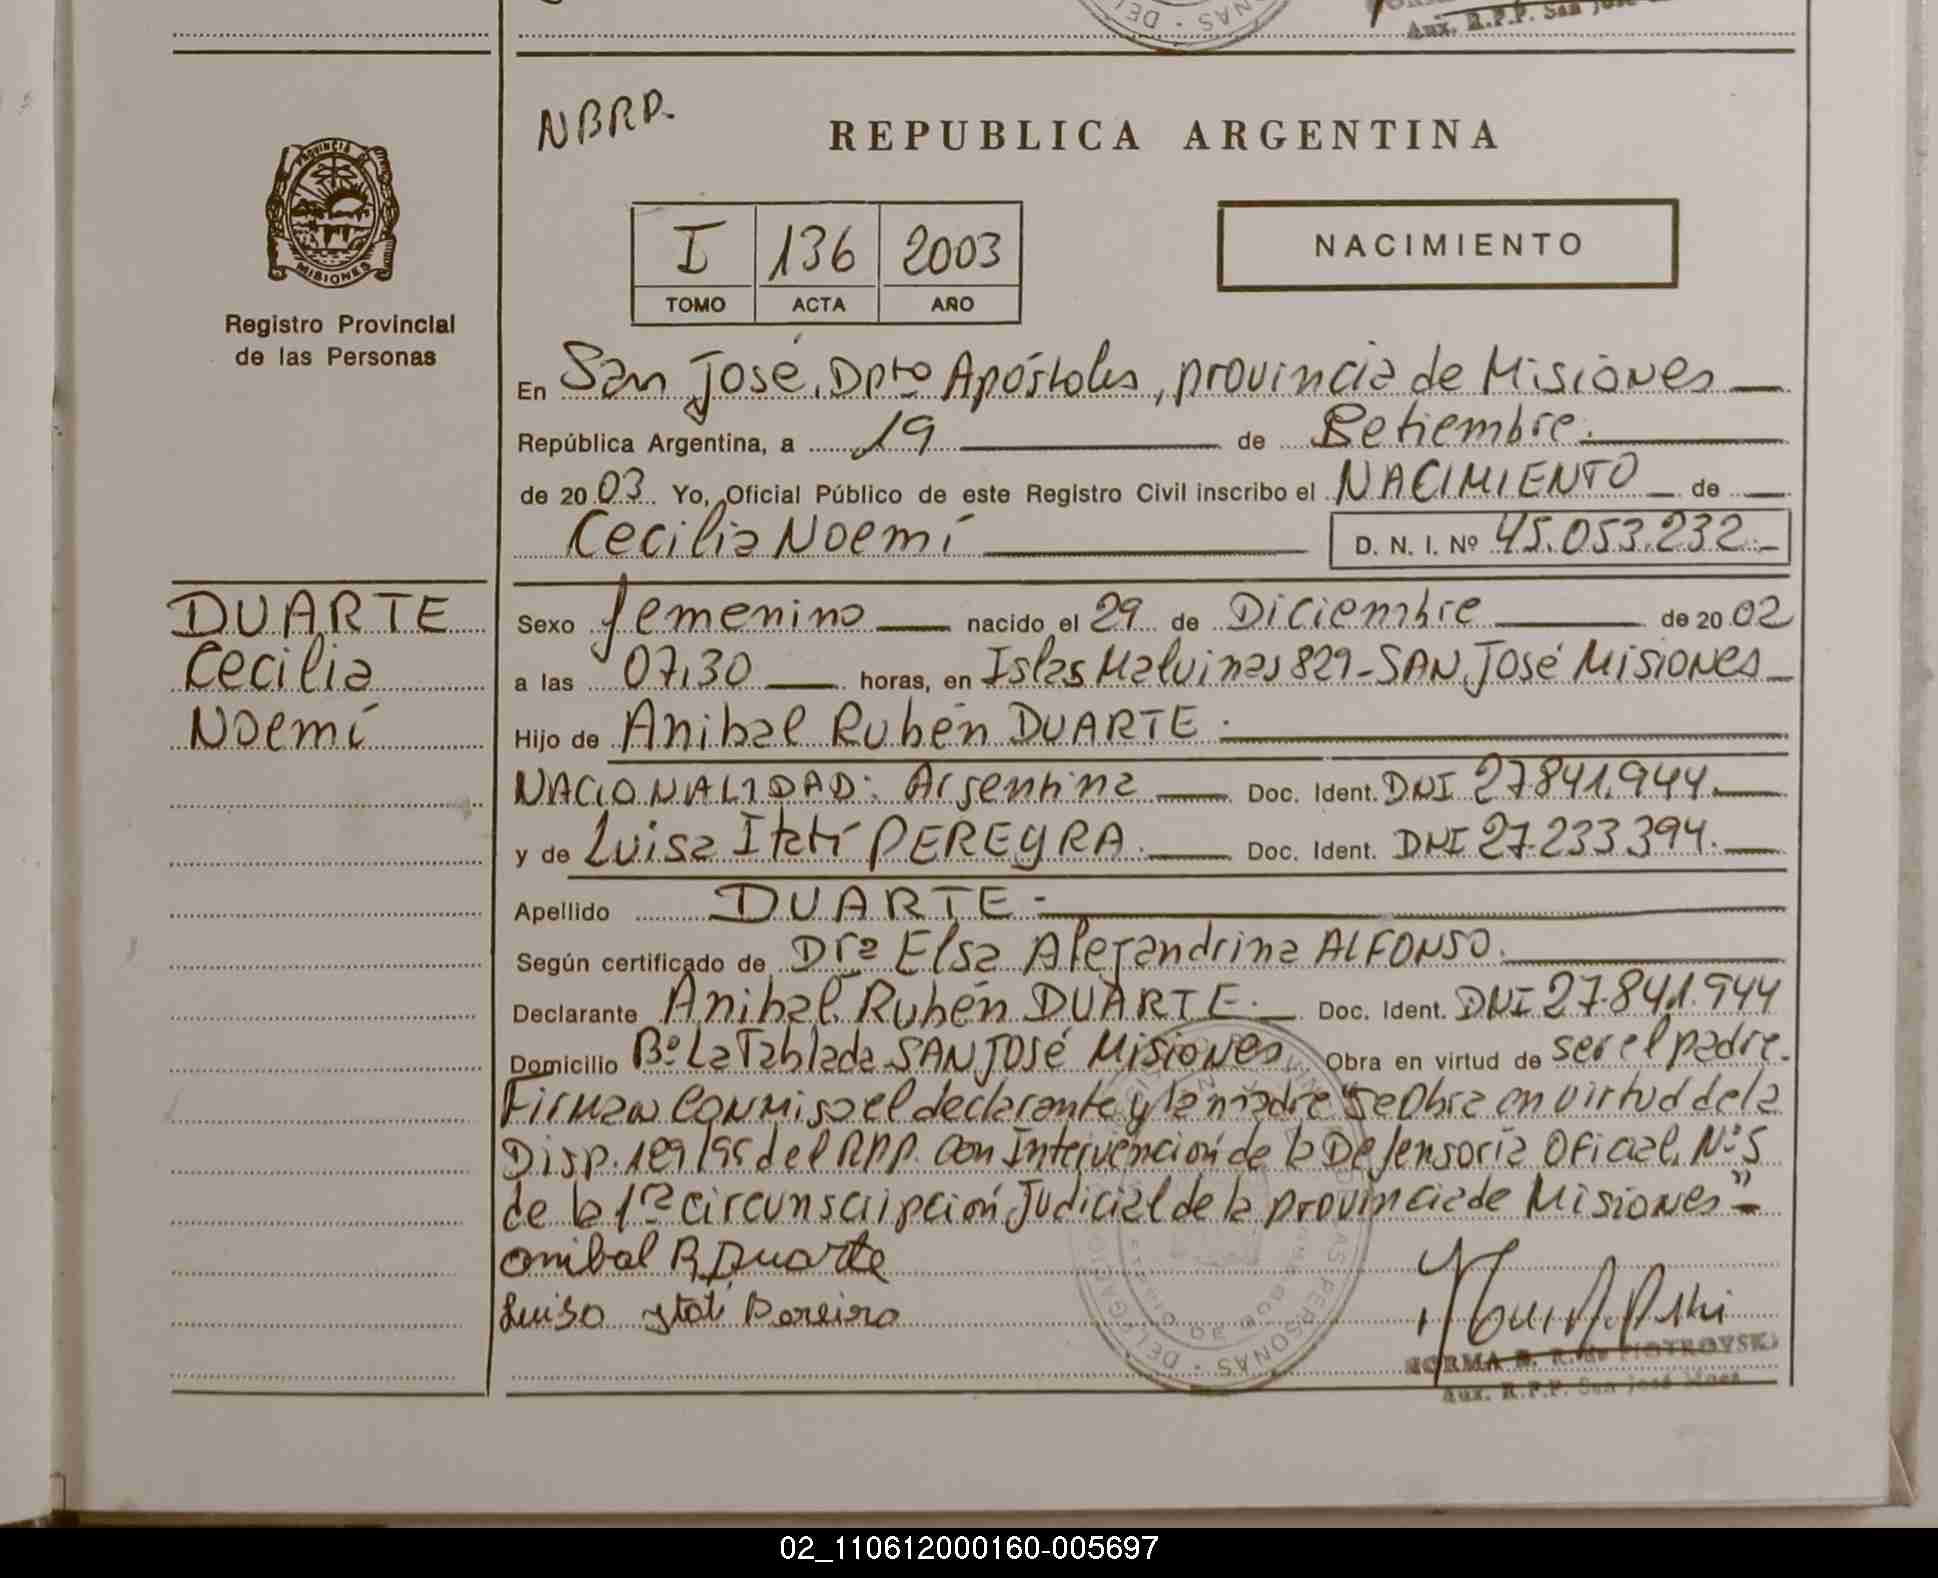 Aux. R.P.P. San José
NBRD.
REPUBLICA ARGENTINA
PROVINCIA DE
MISIONES
Registro Provincial
de las Personas
I 136 2003
TOMO ACTA AÑO
NACIMIENTO
En San José, Dpto Apóstoles, provincia de Misiones
República Argentina, a 19 de Setiembre.
de 2003 Yo, Oficial Público de este Registro Civil inscribo el NACIMIENTO de
Cecilia Noemí D. N. I. Nº 45.053.232.
DUARTE
Cecilia
Noemí
Sexo femenino nacido el 29 de Diciembre de 2002
a las 07,30 horas, en Islas Malvinas 829-SAN JOSÉ Misiones
Hijo de Anibal Rubén DUARTE.
NACIONALIDAD: Argentina Doc. Ident. DNI 27.841.944.
y de Luisa Itatí PEREYRA. Doc. Ident. DNI 27.233.394.
Apellido DUARTE-
Según certificado de Dra Elsa Alejandrina ALFONSO.
Declarante Anibal Rubén DUARTE. Doc. Ident. DNI 27.841.944
Domicilio Bº La Tablada SAN JOSÉ Misiones Obra en virtud de ser el padre.
Firman conmigo el declarante y la madre "Se obra en virtud de la
Disp. 189/95 del RPP. con Intervención de la Defensoría Oficial Nº 5
de la 1ra circunscripción Judicial de la provincia de Misiones"
anibal R Duarte
Luisa ytati Pereira
NORMA R. de PIOTROVSKI
Aux. R.P.P. San José Mnes
02_110612000160-005697